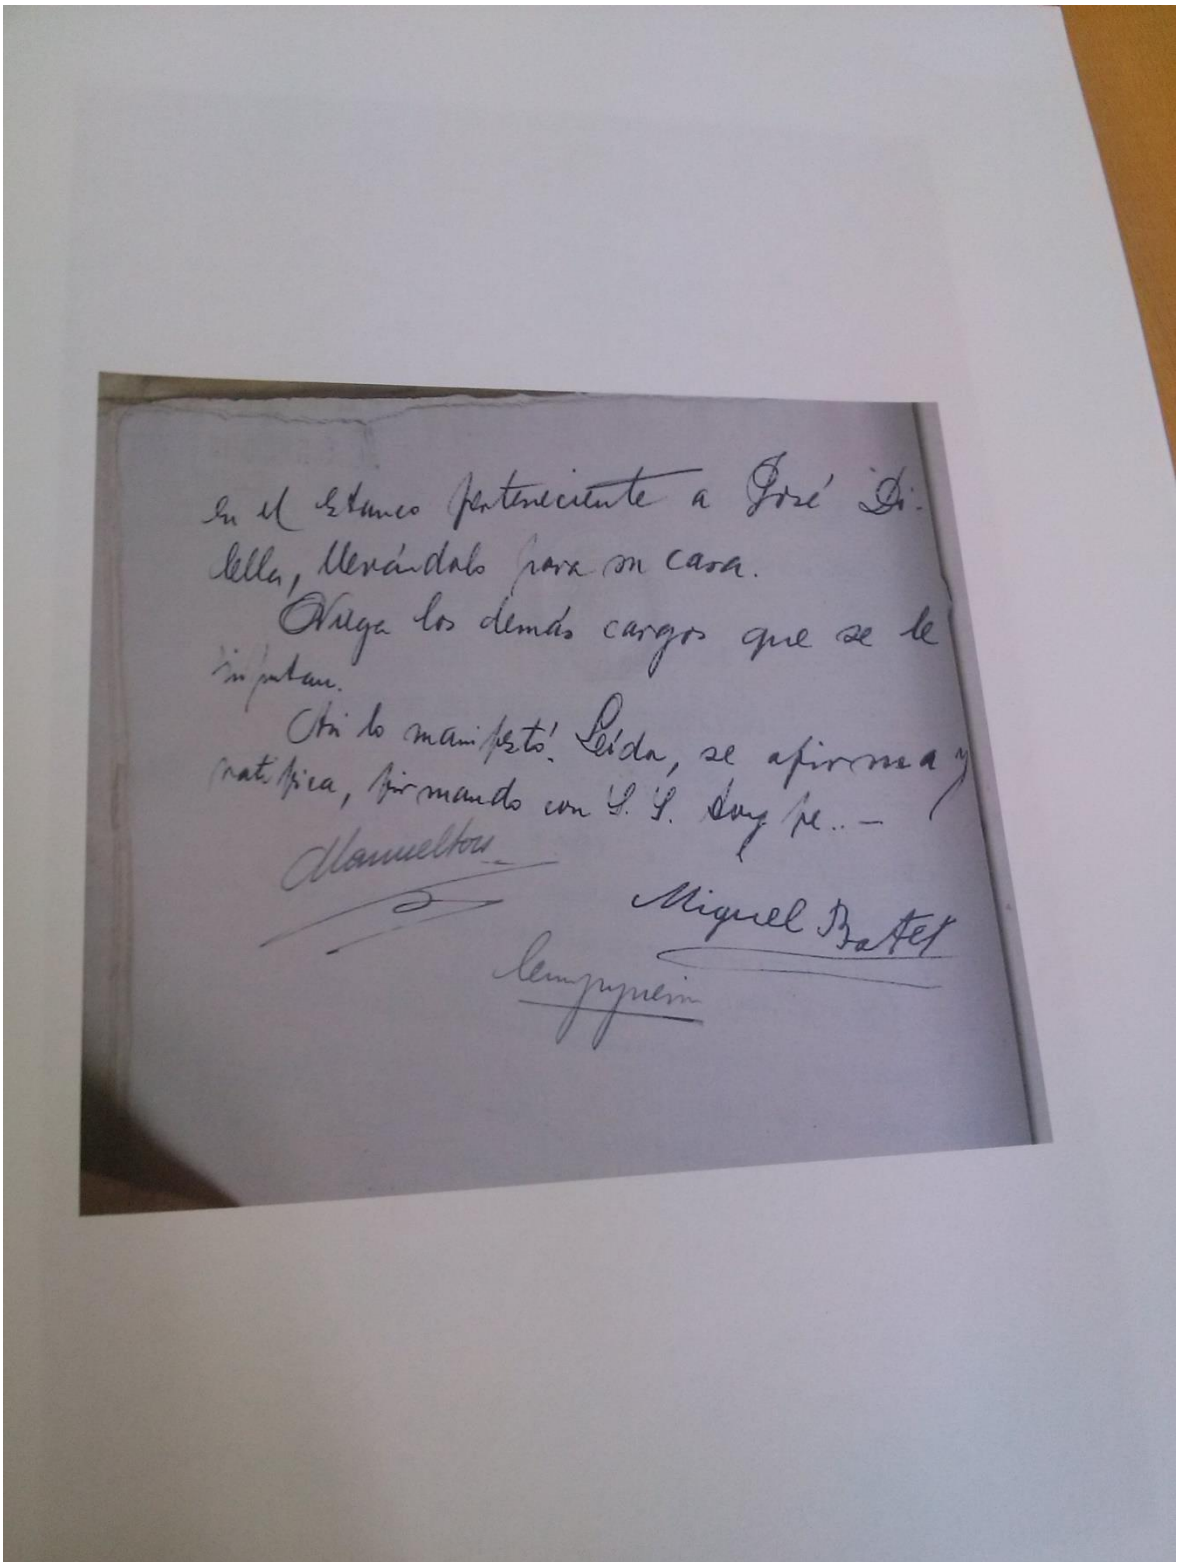 en el estanco perteneciente a José Di-
lella, llevándolo para su casa.
Niega los demás cargos que se le
imputan.
Así lo manifestó. Leída, se afirma y
ratifica, firmando con S. S. Doy fe.. —
Miguel Batet